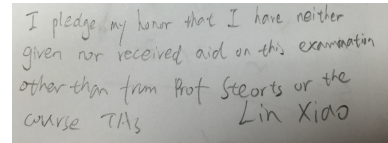 I pledge my honor that I have neither
given nor received aid on this examination
other than from Prof Steorts or the
course TAs Lin Xiao